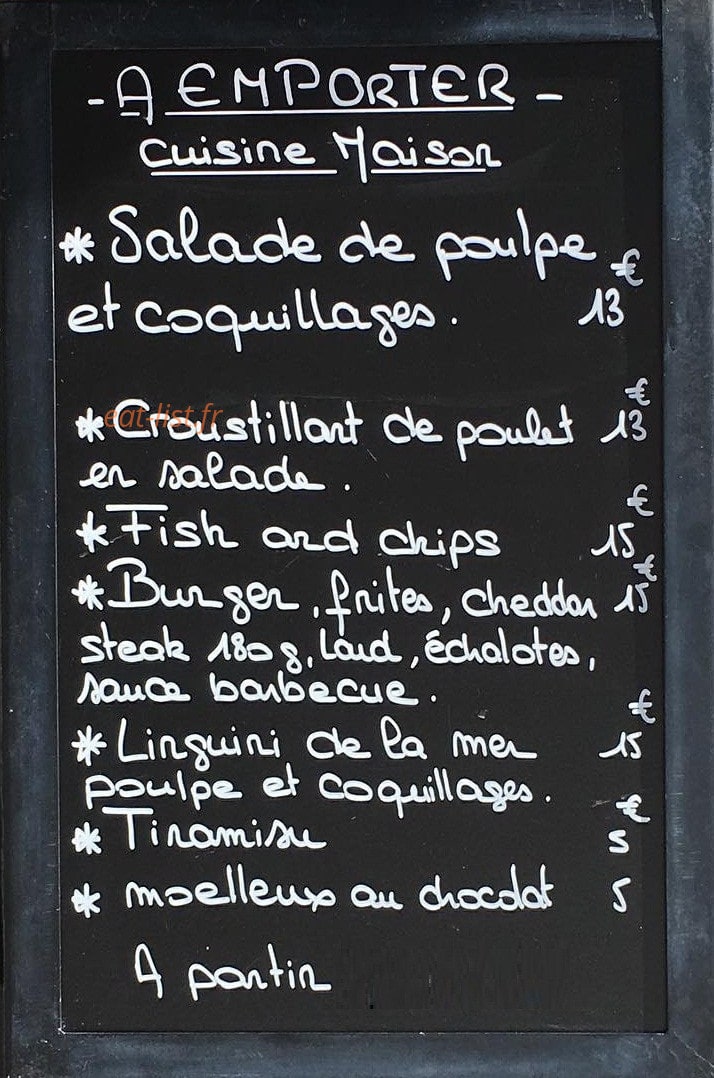 - A EMPORTER -
Cuisine Maison
* Salade de poulpe
et coquillages. 13 €
eat-list.fr
* Croustillant de poulet 13 €
en salade.
* Fish and chips 15 €
* Burger, frites, cheddar 15 €
steak 180 g, lard, échalotes,
sauce barbecue.
* Linguini de la mer 15 €
poulpe et coquillages.
* Tiramisu 5 €
* moelleux au chocolat 5
A partir